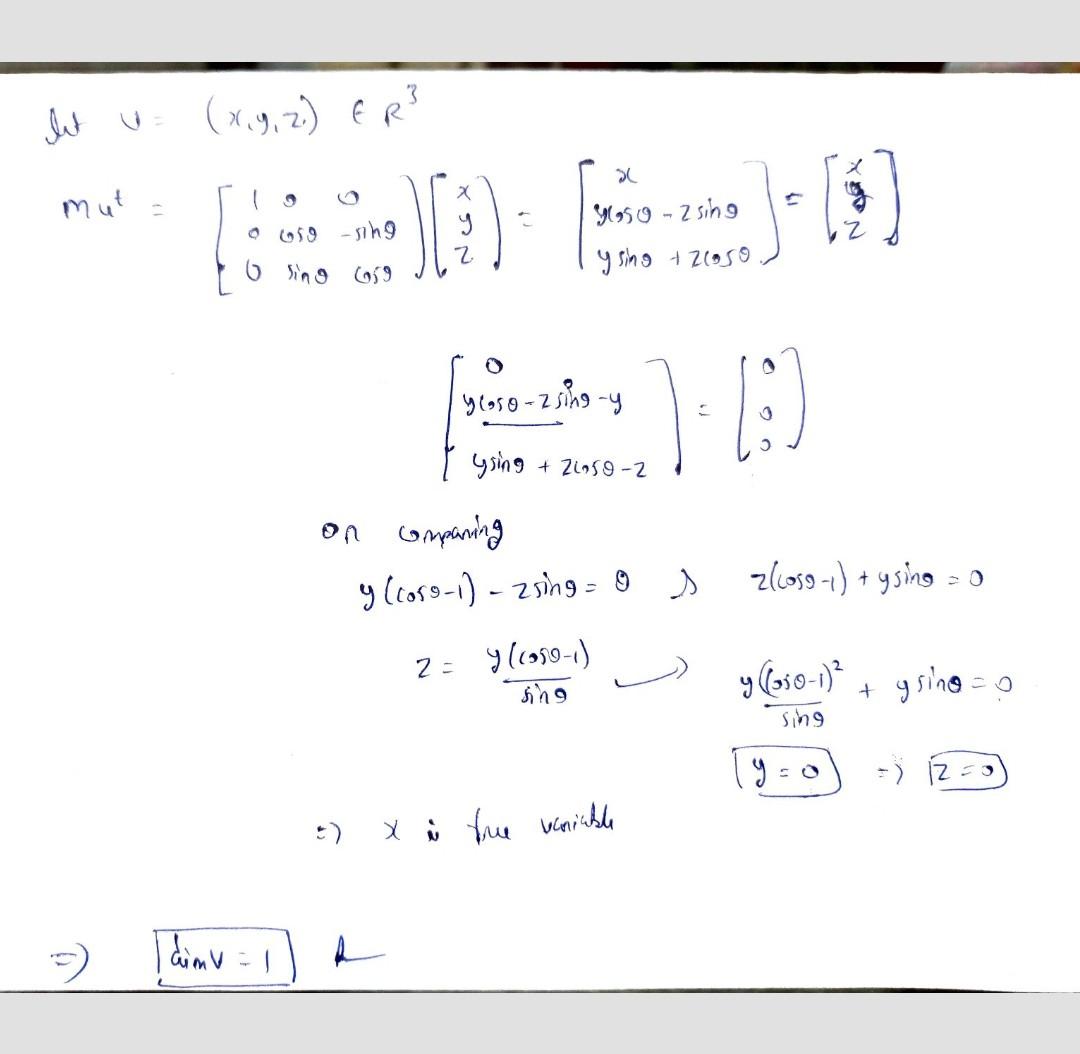 let v = (x, y, z) ∈ R³
mu^t = [1 0 0; 0 cosθ -sinθ; 0 sinθ cosθ] [x; y; z] = [x; ycosθ - zsinθ; ysinθ + zcosθ] = [x; y; z]
[0; ycosθ - zsinθ - y; ysinθ + zcosθ - z] = [0; 0; 0]
on comparing
y(cosθ-1) - zsinθ = 0 & z(cosθ-1) + ysinθ = 0
z = y(cosθ-1)/sinθ → y(cosθ-1)²/sinθ + ysinθ = 0
y = 0 => z = 0
=> x is free variable
=> dim V = 1